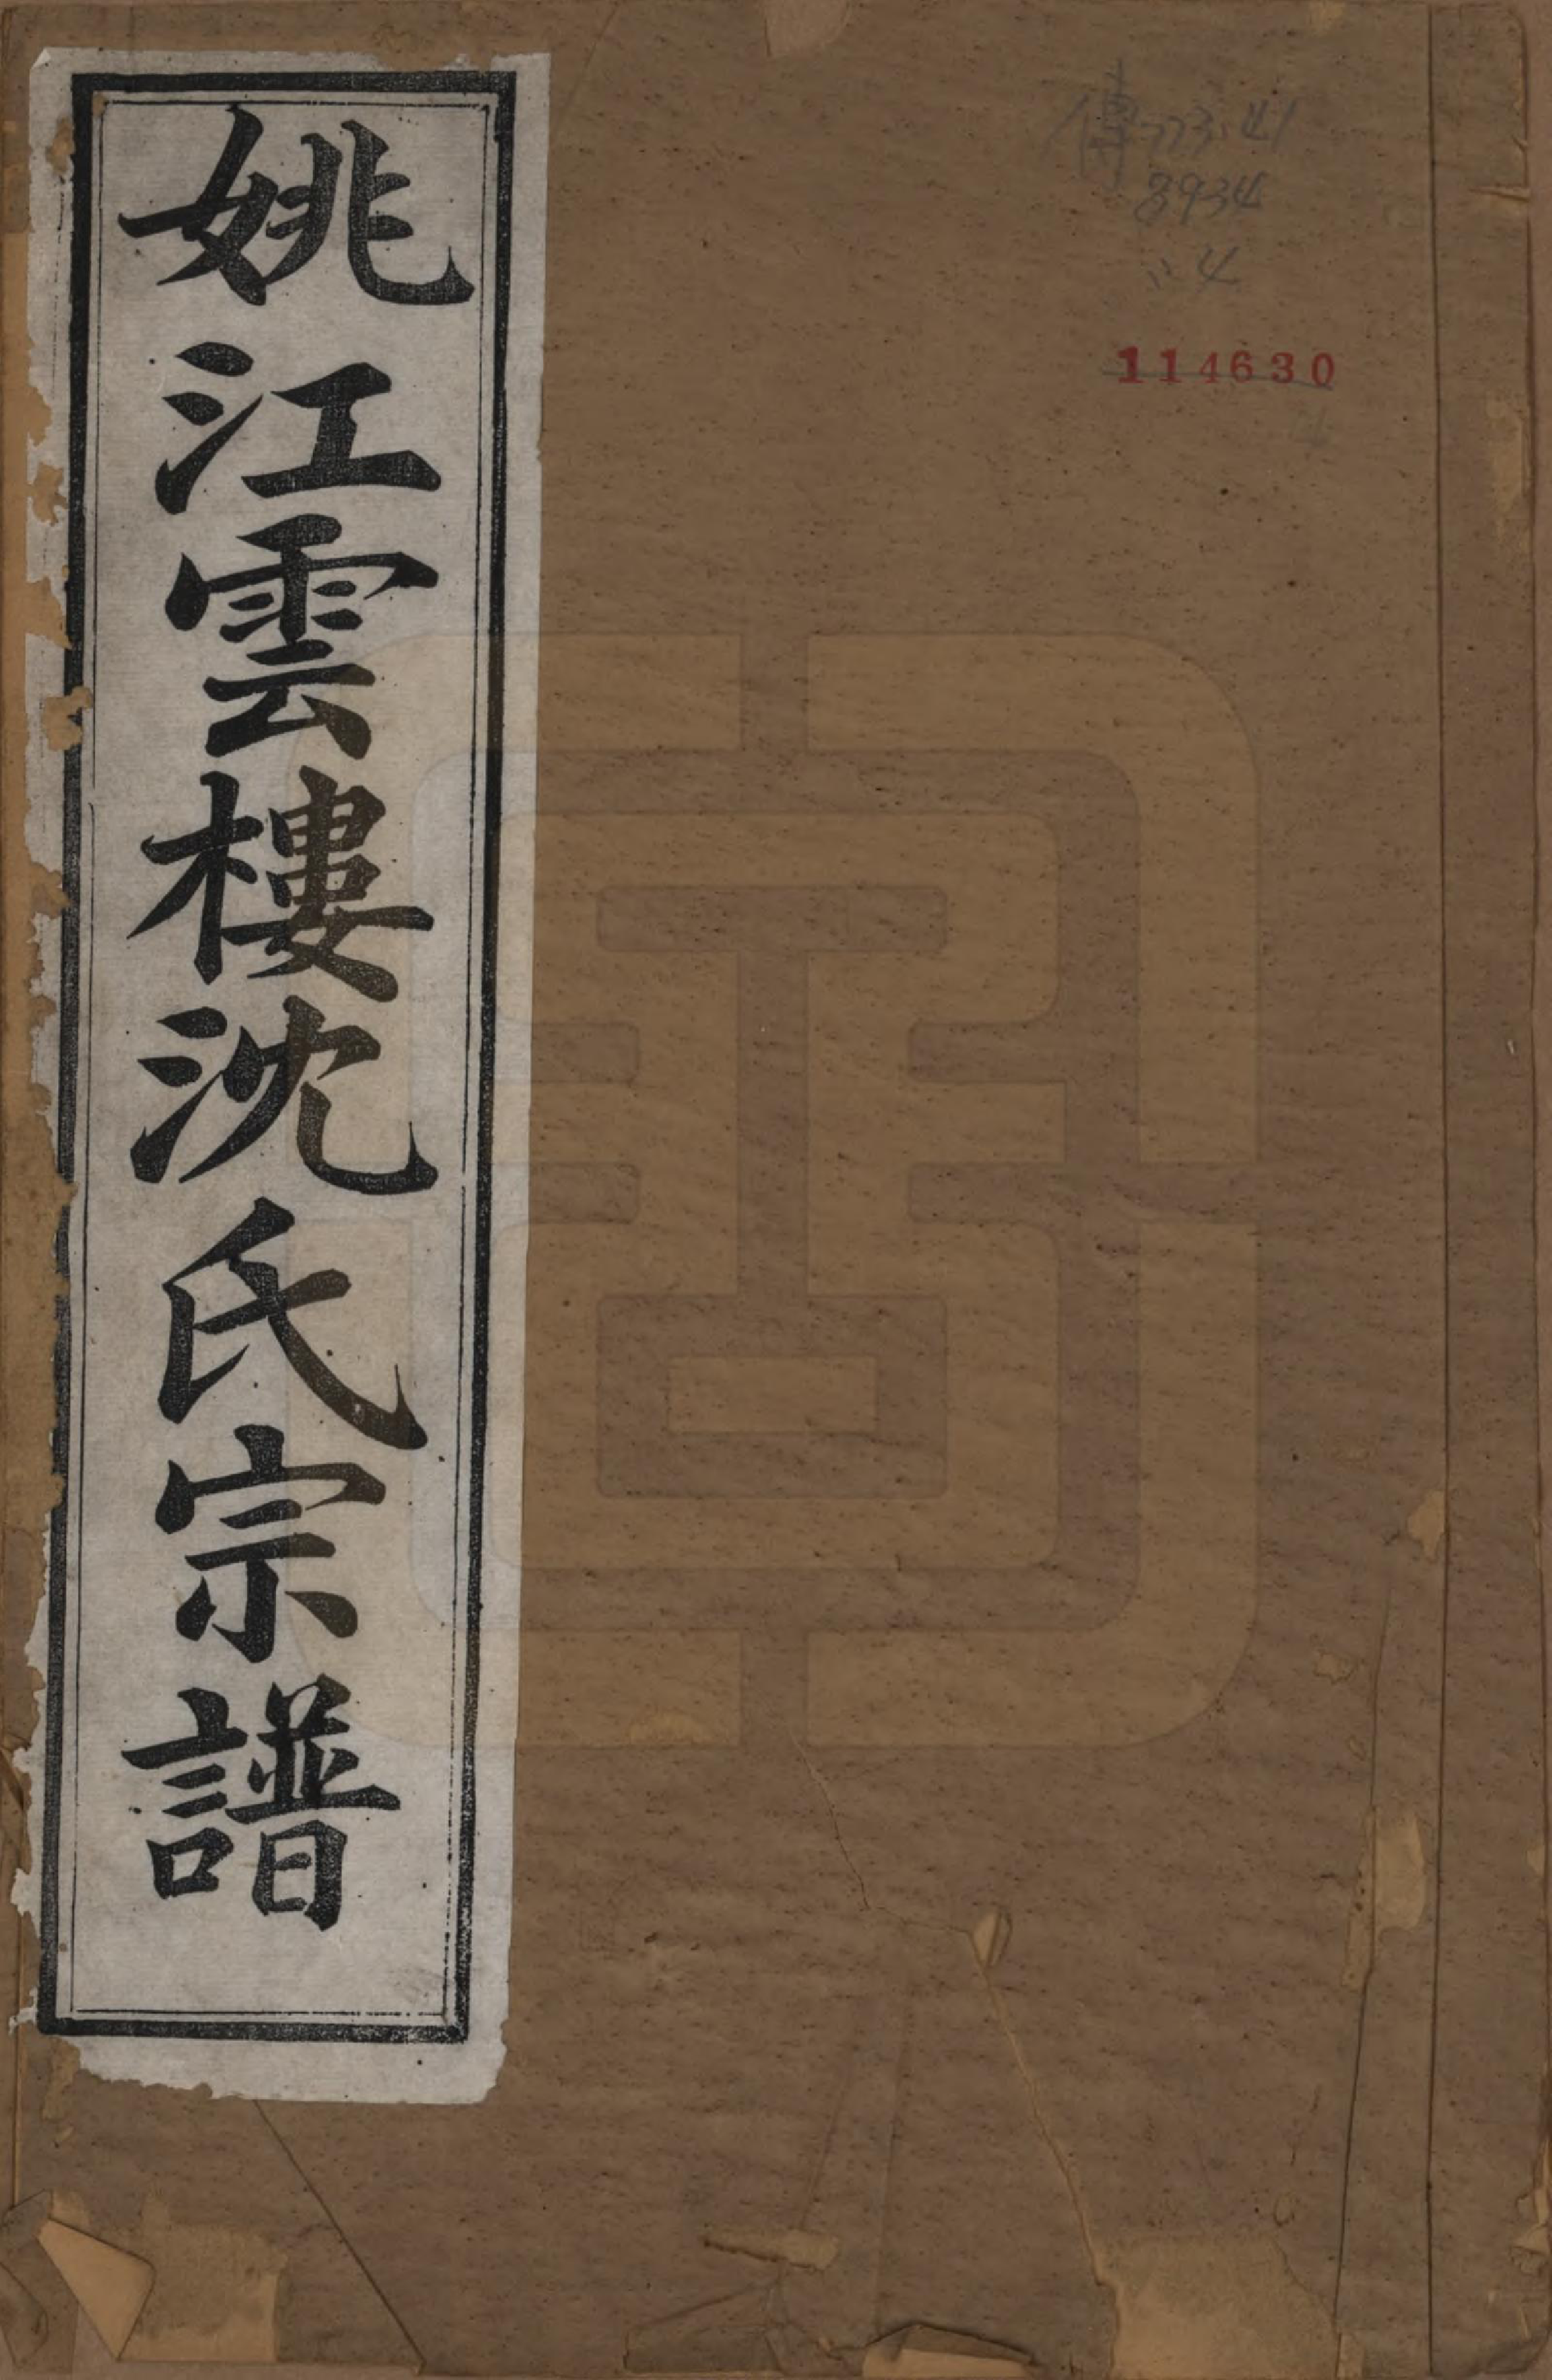 姚江雲樓沈氏宗譜
傳773.41
8934
:4
114630